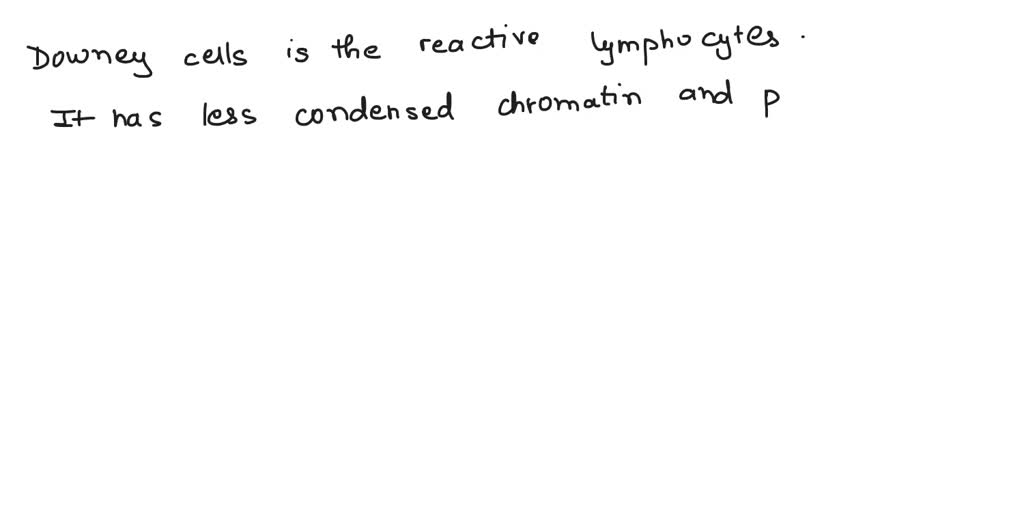 Downey cells is the reactive lymphocytes.
It has less condensed chromatin and p